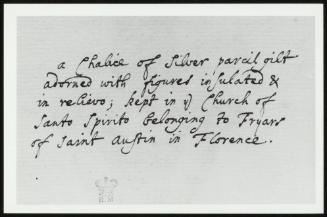 a Chalice of Silver parcil gilt
adorned with figures insulated &
in relievo; kept in yͤ Church of
Santo Spirito belonging to Fryars
of Saint Austin in Florence.